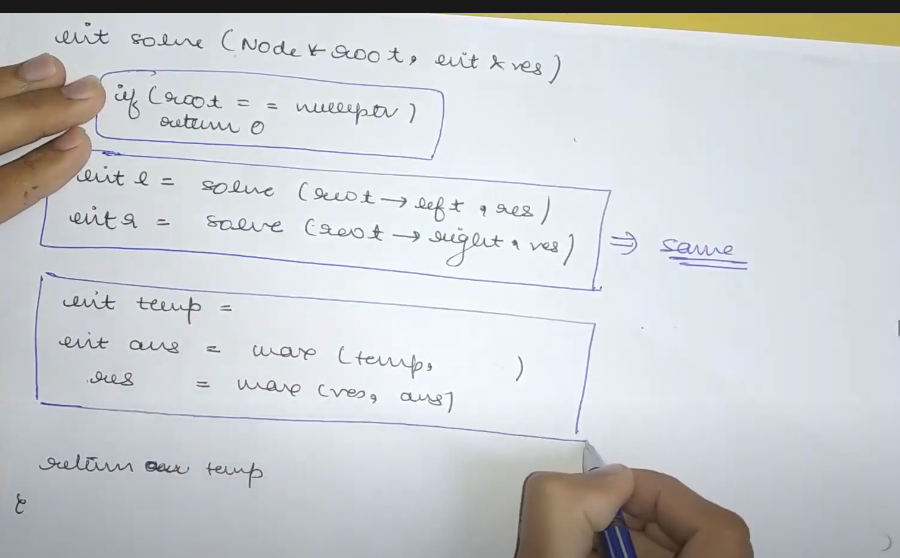 int solve (Node * root, int & res)
if (root == nullptr)
return 0
int l = solve (root → left, res)
int r = solve (root → right, res)
⇒ same
int temp =
int ans = max (temp, )
res = max (res, ans)
return temp